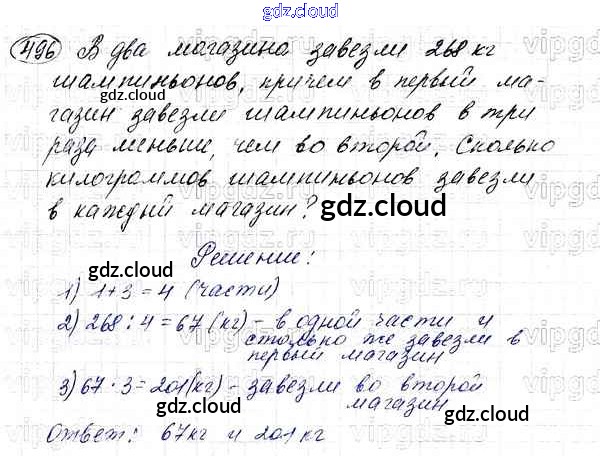 gdz.cloud
496 В два магазина завезли 268 кг
gdz.cloud
шампиньонов, причем в первый ма-
газин завезли шампиньонов в три
раза меньше, чем во второй. Сколько
килограммов шампиньонов завезли
в каждый магазин?
gdz.cloud
Решение:
gdz.cloud
1) 1+3=4 (части)
2) 268:4=67(кг) - в одной части и
столько же завезли в
первый магазин
gdz.cloud
3) 67·3=201(кг) - завезли во второй
магазин
gdz.cloud
gdz.cloud
Ответ: 67кг и 201 кг